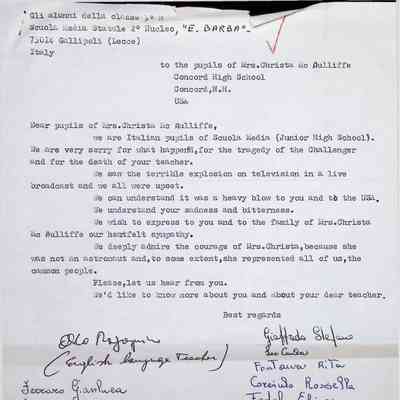 Gli alunni della classe
Scuola Media Statale 2° Nucleo, "E. BARBA".
73014 Gallipoli (Lecce)
Italy
to the pupils of Mrs.Christa Mc Aulliffe
Concord High School
Concord,N.H.
USA
Dear pupils of Mrs.Christa Mc Aulliffe,
we are Italian pupils of Scuola Media (Junior High School).
We are very sorry for what happened, for the tragedy of the Challenger
and for the death of your teacher.
We saw the terrible explosion on television in a live
broadcast and we all were upset.
We can understand it was a heavy blow to you and to the USA.
We understand your sadness and bitterness.
We wish to express to you and to the family of Mrs.Christa
Mc Aulliffe our heartfelt sympathy.
We deeply admire the courage of Mrs.Christa, because she
was not an astronaut and, to some extent, she represented all of us, the
common people.
Please, let us hear from you.
We'd like to know more about you and about your dear teacher.
Best regards
(English language Teacher)
Stefano
Fontana Rita
Rossella
Ferraro Gianluca